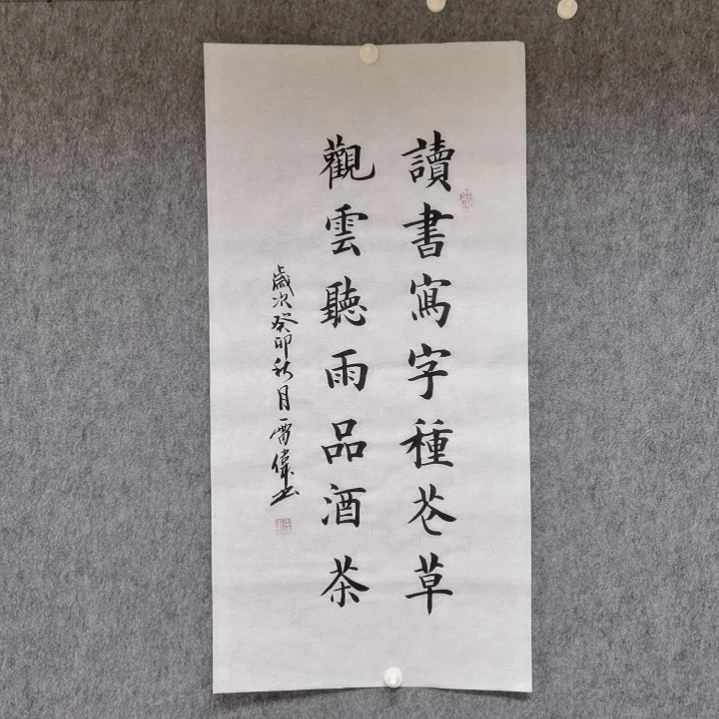 讀書寫字種花草
觀雲聽雨品酒茶
歲次癸卯秋月雷偉書